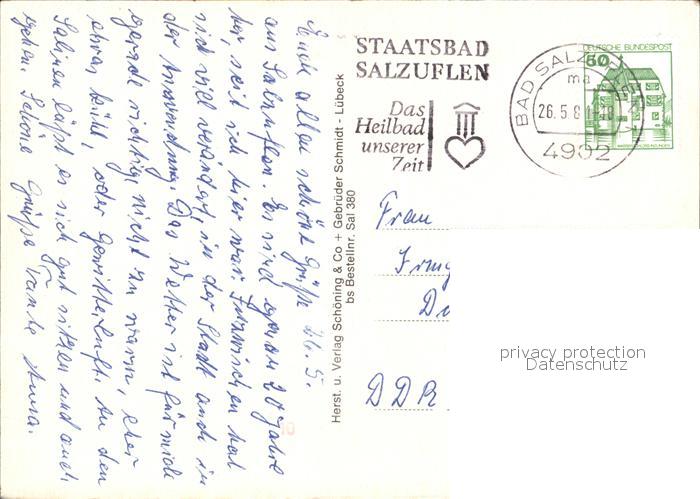 Euch allen schöne Grüße 26. 5.
aus Salzuflen. Es sind genau 20 Jahre
her, seit ich hier war. Inzwischen hat
sich viel verändert, in der Stadt auch in
der Anwendung. Das Wetter ist für mich
gerade richtig, nicht zu warm, eher
etwas kühl, oder Gewitterluft. An den
Salinen läßt es sich gut sitzen und auch
gehen. Schöne Grüße Tante Anna.
Herst. u. Verlag Schöning & Co + Gebrüder Schmidt - Lübeck
bs Bestellnr. Sal 380
STAATSBAD
SALZUFLEN
Das
Heilbad
unserer
Zeit
BAD SALZUFLEN
26.5.81
4902
DEUTSCHE BUNDESPOST
50
Frau
Irmg
DDR
privacy protection
Datenschutz